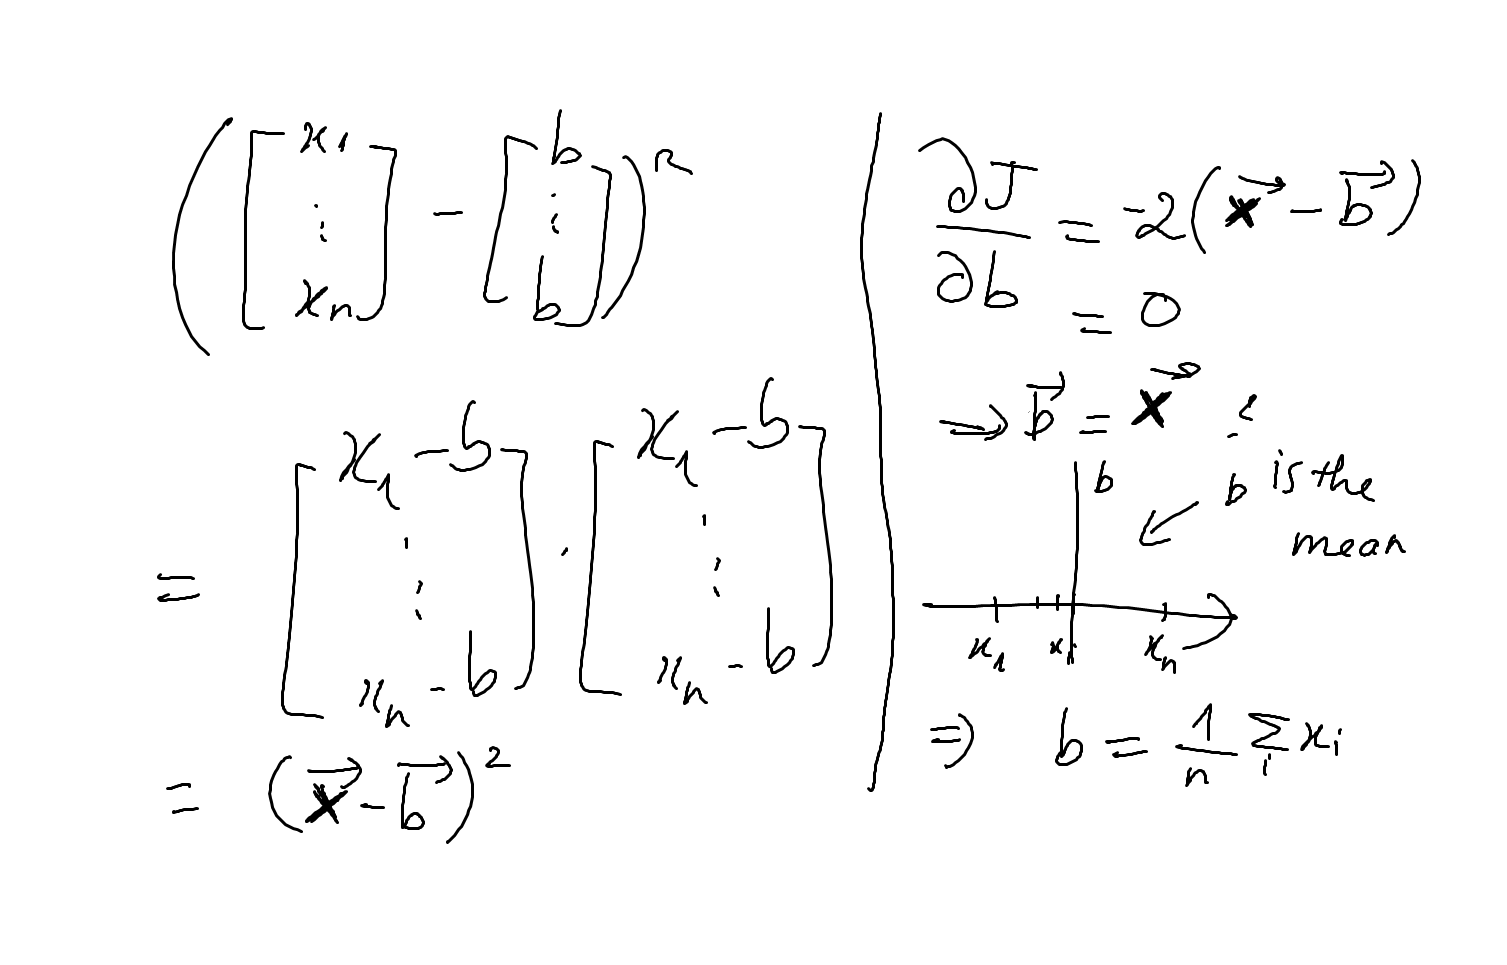 ( [ x₁ ⋮ xₙ ] - [ b ⋮ b ] )²
= [ x₁ - b ⋮ xₙ - b ] · [ x₁ - b ⋮ xₙ - b ]
= (x⃗ - b⃗)²
∂J/∂b = -2(x⃗ - b⃗)
= 0
⇒ b⃗ = x⃗
b
b is the
mean
x₁ xᵢ xₙ
⇒ b = 1/n Σᵢ xᵢ